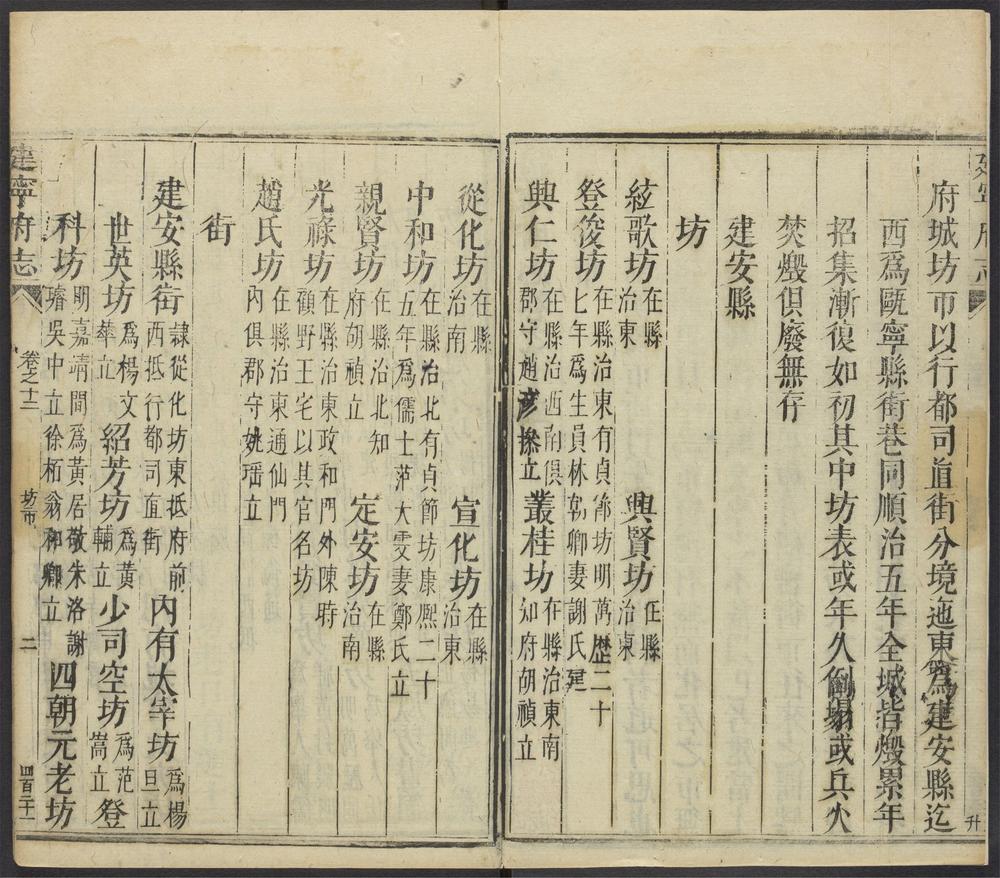 建寧府志
升
府城坊市以行都司直街分境迤東爲建安縣迄
西爲甌寧縣街巷同順治五年全城皆燬累年
招集漸復如初其中坊表或年久倒塌或兵火
焚燬俱廢無存
建安縣
坊
絃歌坊在縣治東 興賢坊在縣治東
登俊坊在縣治東有貞節坊明萬歷二十七年爲生員林 卿妻謝氏建
興仁坊在縣治西南俱郡守趙彥操立 叢桂坊在縣治東南知府胡禎立
從化坊在縣治南 宣化坊在縣治東
中和坊在縣治北有貞節坊康熙二十五年爲儒士范大雯妻鄭氏立
親賢坊在縣治北知府胡禎立 定安坊在縣治南
光祿坊在縣治東政和門外陳時顧野王宅以其官名坊
趙氏坊在縣治東通仙門內俱郡守姚瑶立
街
建安縣街隷從化坊東抵府前西抵行都司直街 內有太宰坊爲楊旦立
世英坊爲楊文華立 紹芳坊爲黃輔立 少司空坊爲范嵩立 登
科坊明嘉靖間爲黃居敬朱洛謝璿吳中立徐栢翁和卿立 四朝元老坊
建寧府志
卷之十二
坊市
二
四百三十一